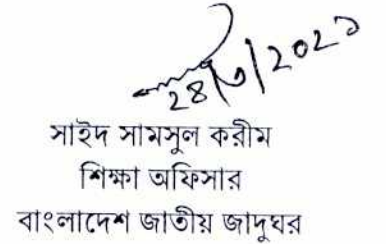 ২৪/৩/২০২১
সাইদ সামসুল করীম
শিক্ষা অফিসার
বাংলাদেশ জাতীয় জাদুঘর